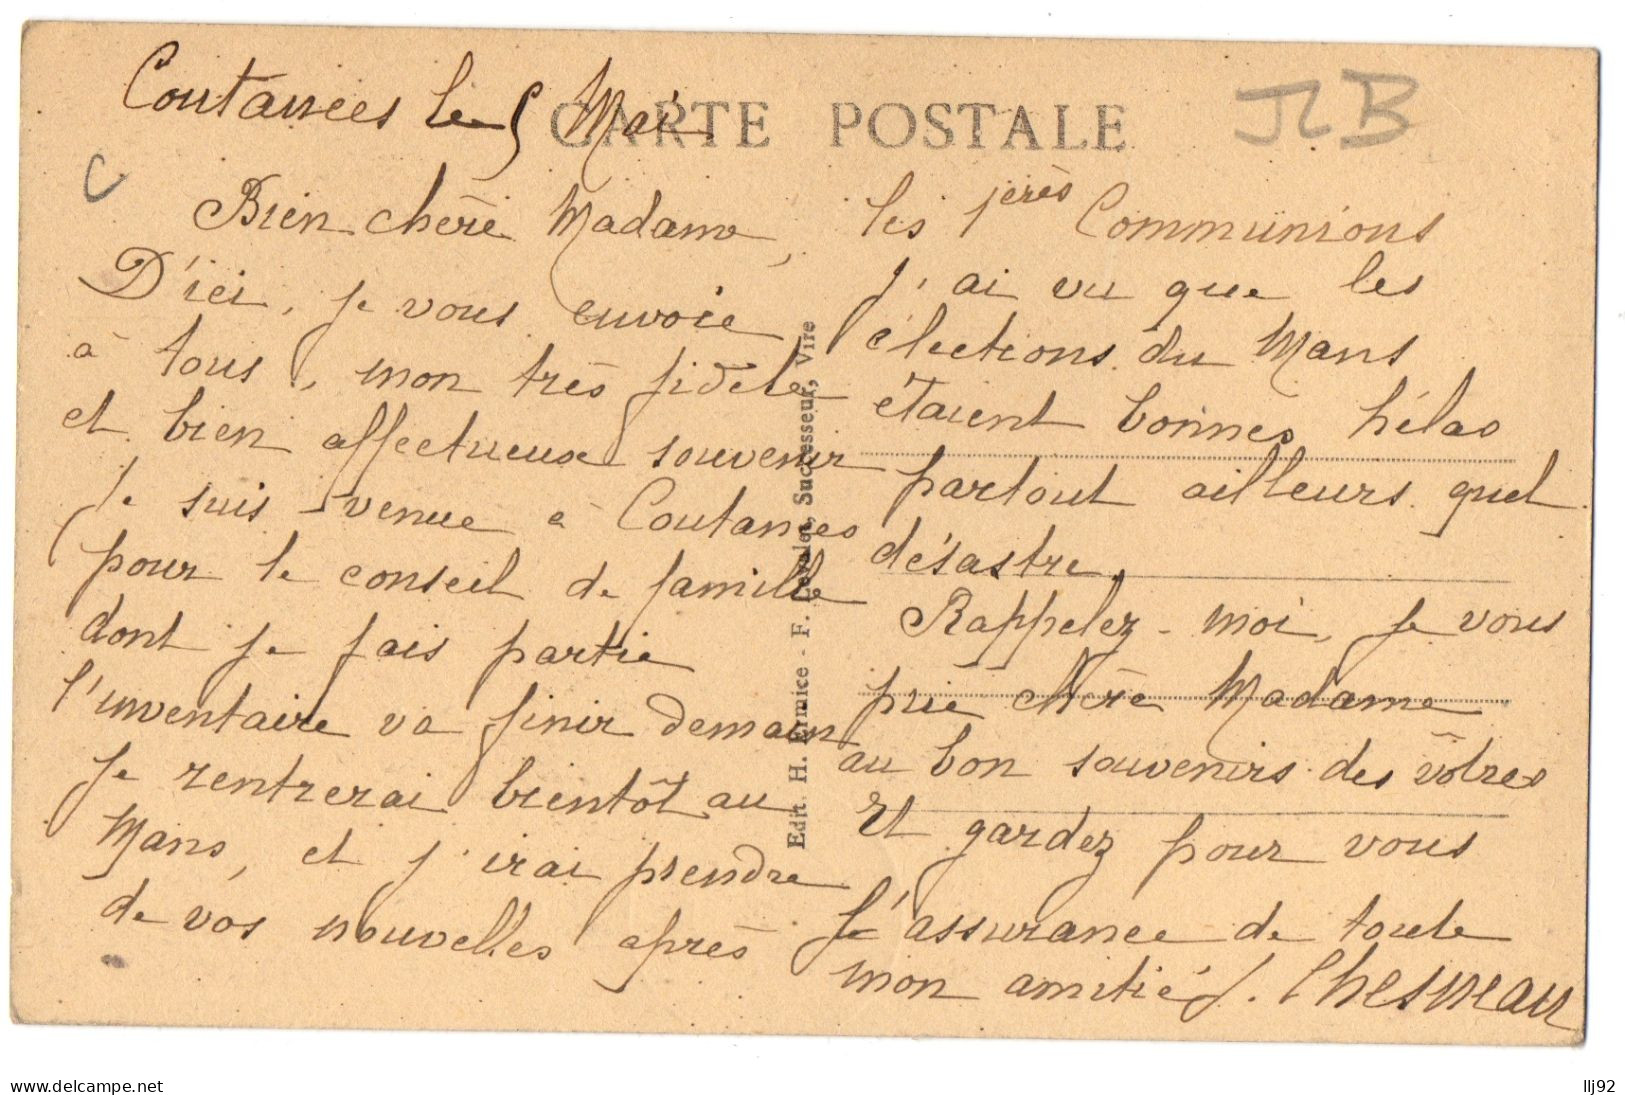 Coutances le 5 Mai
CARTE POSTALE
JLB
C
Bien chère Madame,
D'ici, je vous envoie
à tous, mon très fidèle
et bien affectueux souvenir
Je suis venue à Coutances
pour le conseil de famille
dont je fais partie
l'inventaire va finir demain
Je rentrerai bientôt au
Mans, et j'irai prendre
de vos nouvelles après
Edit. H. Ermice - F. Levalet, Successeur, Vire
les 1ères Communions
J'ai vu que les
élections du Mans
étaient bonnes hélas
partout ailleurs quel
désastre.
Rappelez-moi, je vous
prie chère Madame
au bon souvenirs des vôtres
Et gardez pour vous
l'assurance de toute
mon amitié J. Chesneau
delcampe.net
llj92